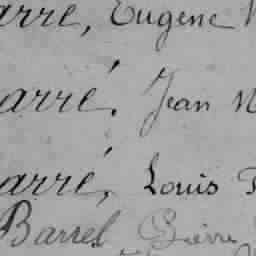 arré, Eugène
arré. Jean
arré, Louis
Barrel Pierre